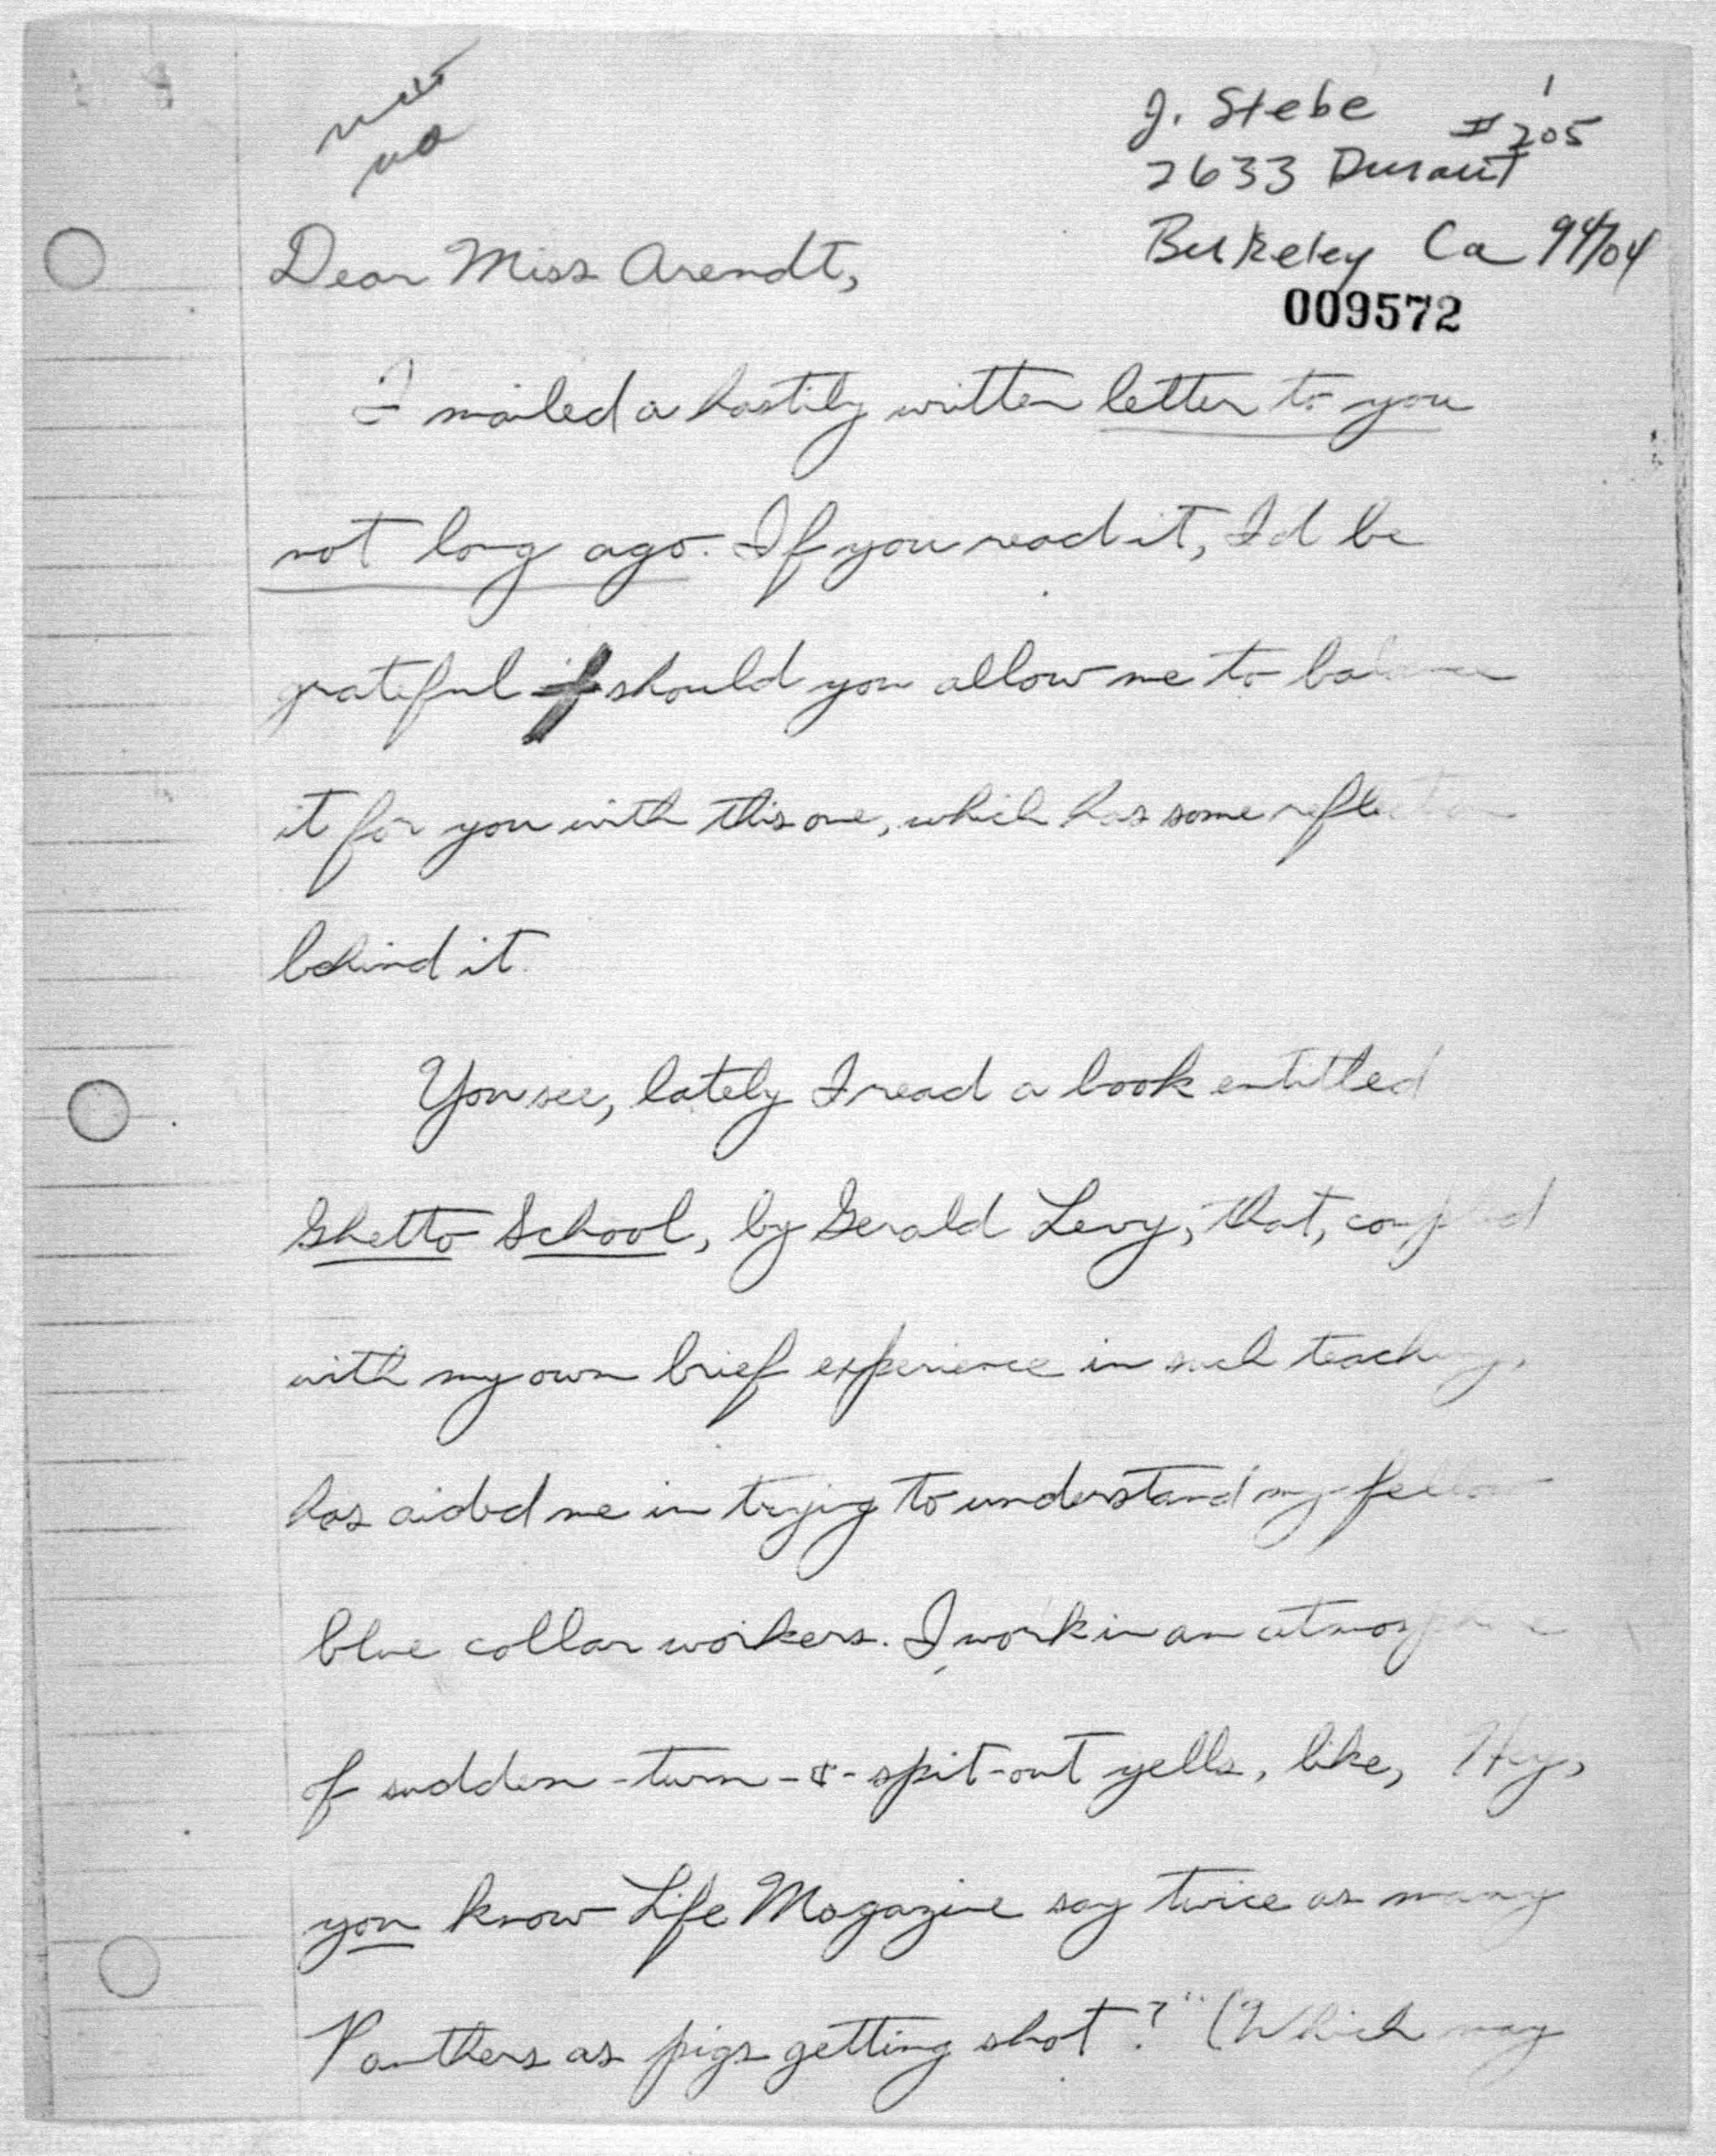 J. Stebe #205
1
2633 Durant
Berkeley Ca 94704
009572
no
Dear Miss Arendt,
I mailed a hastily written letter to you
not long ago. If you read it, I'd be
grateful if should you allow me to balance
it for you with this one, which has some reflection
behind it.
You see, lately I read a book entitled
Ghetto School, by Gerald Levy, that, coupled
with my own brief experience in such teaching,
has aided me in trying to understand my fellow
blue collar workers. I work in an atmosphere
of sudden-turn-&-spit-out yells, like, Hey,
you know Life Magazine say twice as many
Panthers as pigs getting shot?" (Which may